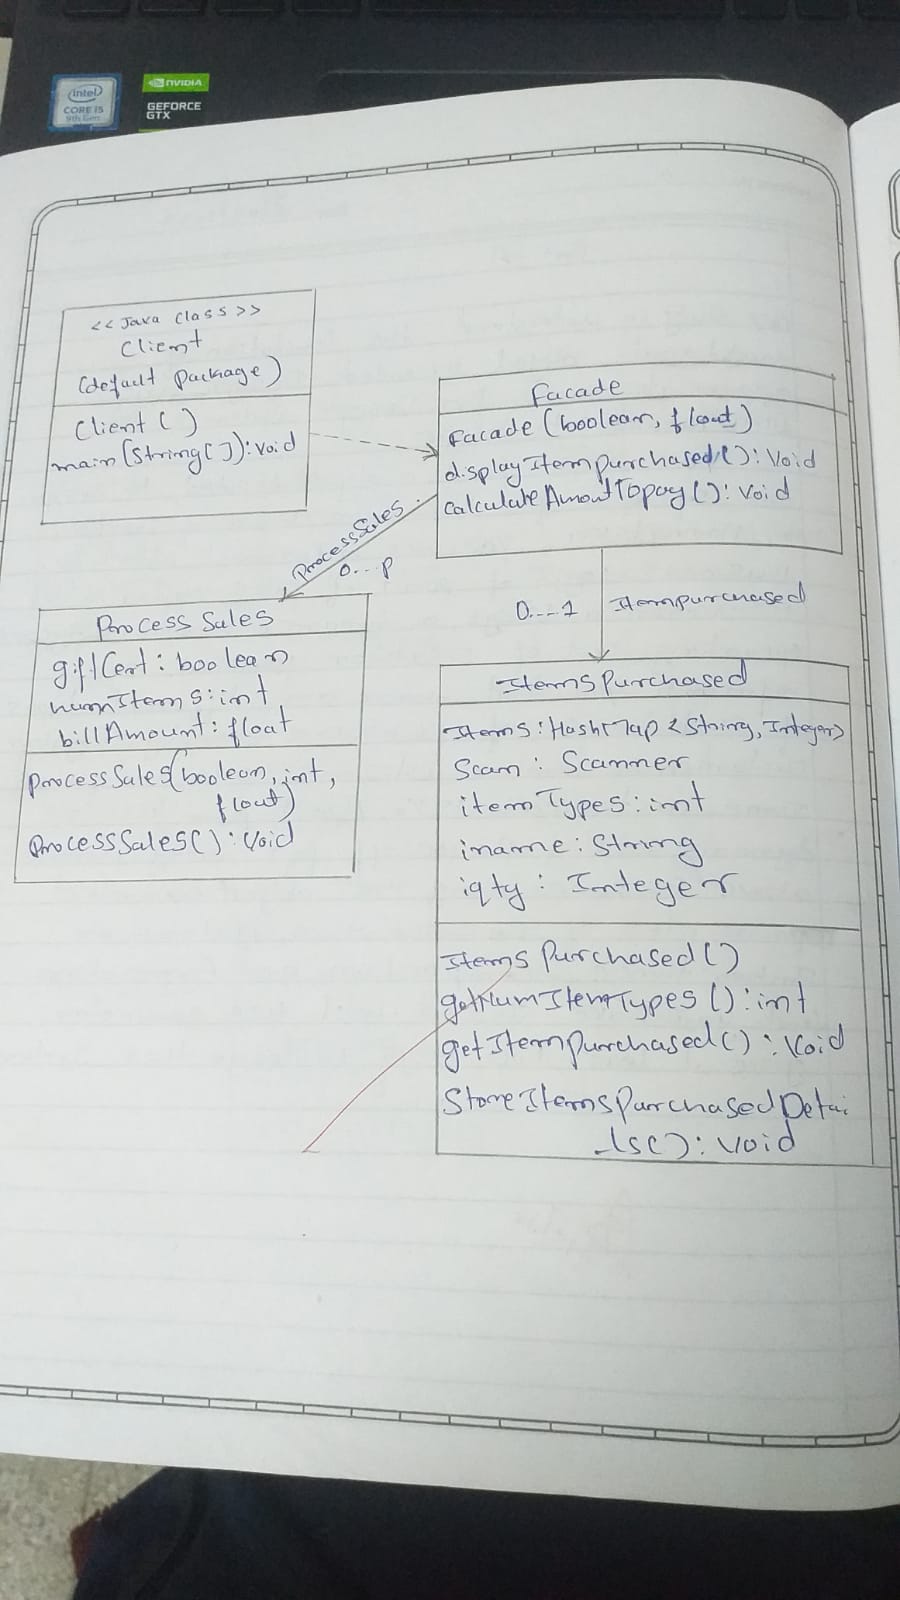 intel
CORE i5
9th Gen
NVIDIA
GEFORCE
GTX
<< Java Class >>
Client
(default Package)
Client ()
main(String[]): void
Facade
Facade (boolean, float)
displayItempurchased(): Void
calculateAmoutTopay(): Void
ProcessSales
0...p
0...1
Itempurchased
Process Sales
giftCert: boolean
numItems: int
billAmount: float
ProcessSales(boolean, int,
float)
ProcessSales(): Void
Items purchased
Items: HashMap <String, Integer>
Scan: Scanner
itemTypes: int
iname: String
iqty: Integer
Items Purchased()
getNumItemTypes(): int
getItempurchased(): Void
StoreItemsPurchasedDetai
-ls(): Void